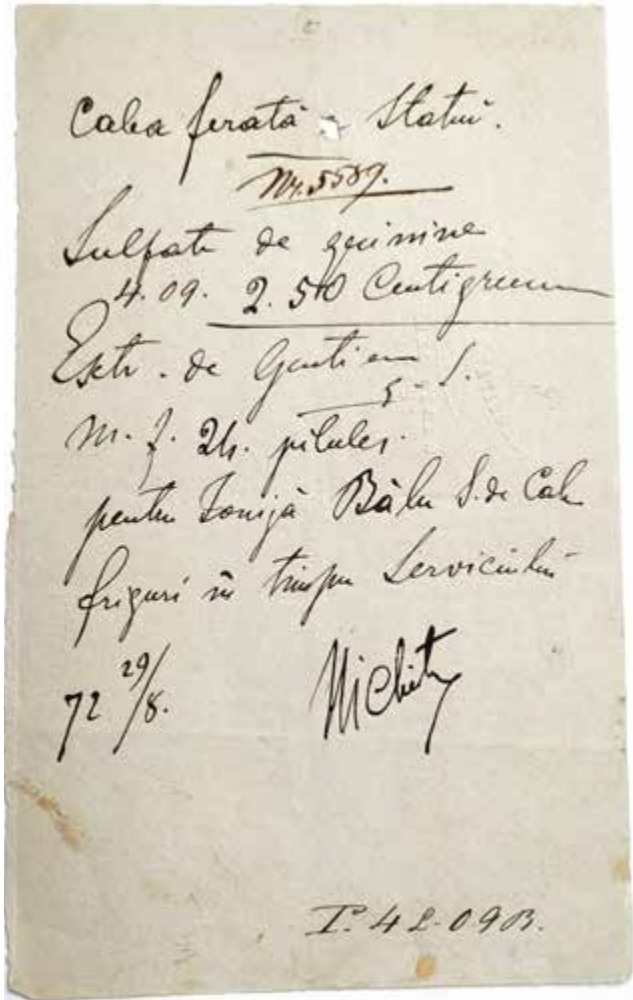 Calea ferată a Statui.
Nr. 5589.
Sulfate de quinine
4.09. 2.50 Centigrame
Estr. de Gentiem
5 - S.
M. f. 24. pilules.
pentru Bălu S. de Cale
friguri in timpu Serviciului
72 29/8.
I. 4 L-09 B.